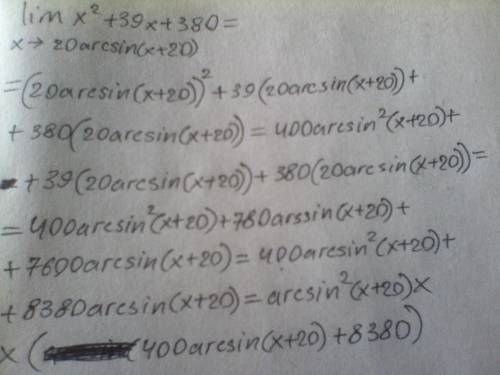 lim x² + 39x + 380 =
x → 20arcsin(x+20)
= (20arcsin(x+20))² + 39(20arcsin(x+20)) +
+ 380(20arcsin(x+20)) = 400arcsin²(x+20) +
+ 39(20arcsin(x+20)) + 380(20arcsin(x+20)) =
= 400arcsin²(x+20) + 780arssin(x+20) +
+ 7600arcsin(x+20) = 400arcsin²(x+20) +
+ 8380arcsin(x+20) = arcsin²(x+20) ×
× (400arcsin(x+20) + 8380)